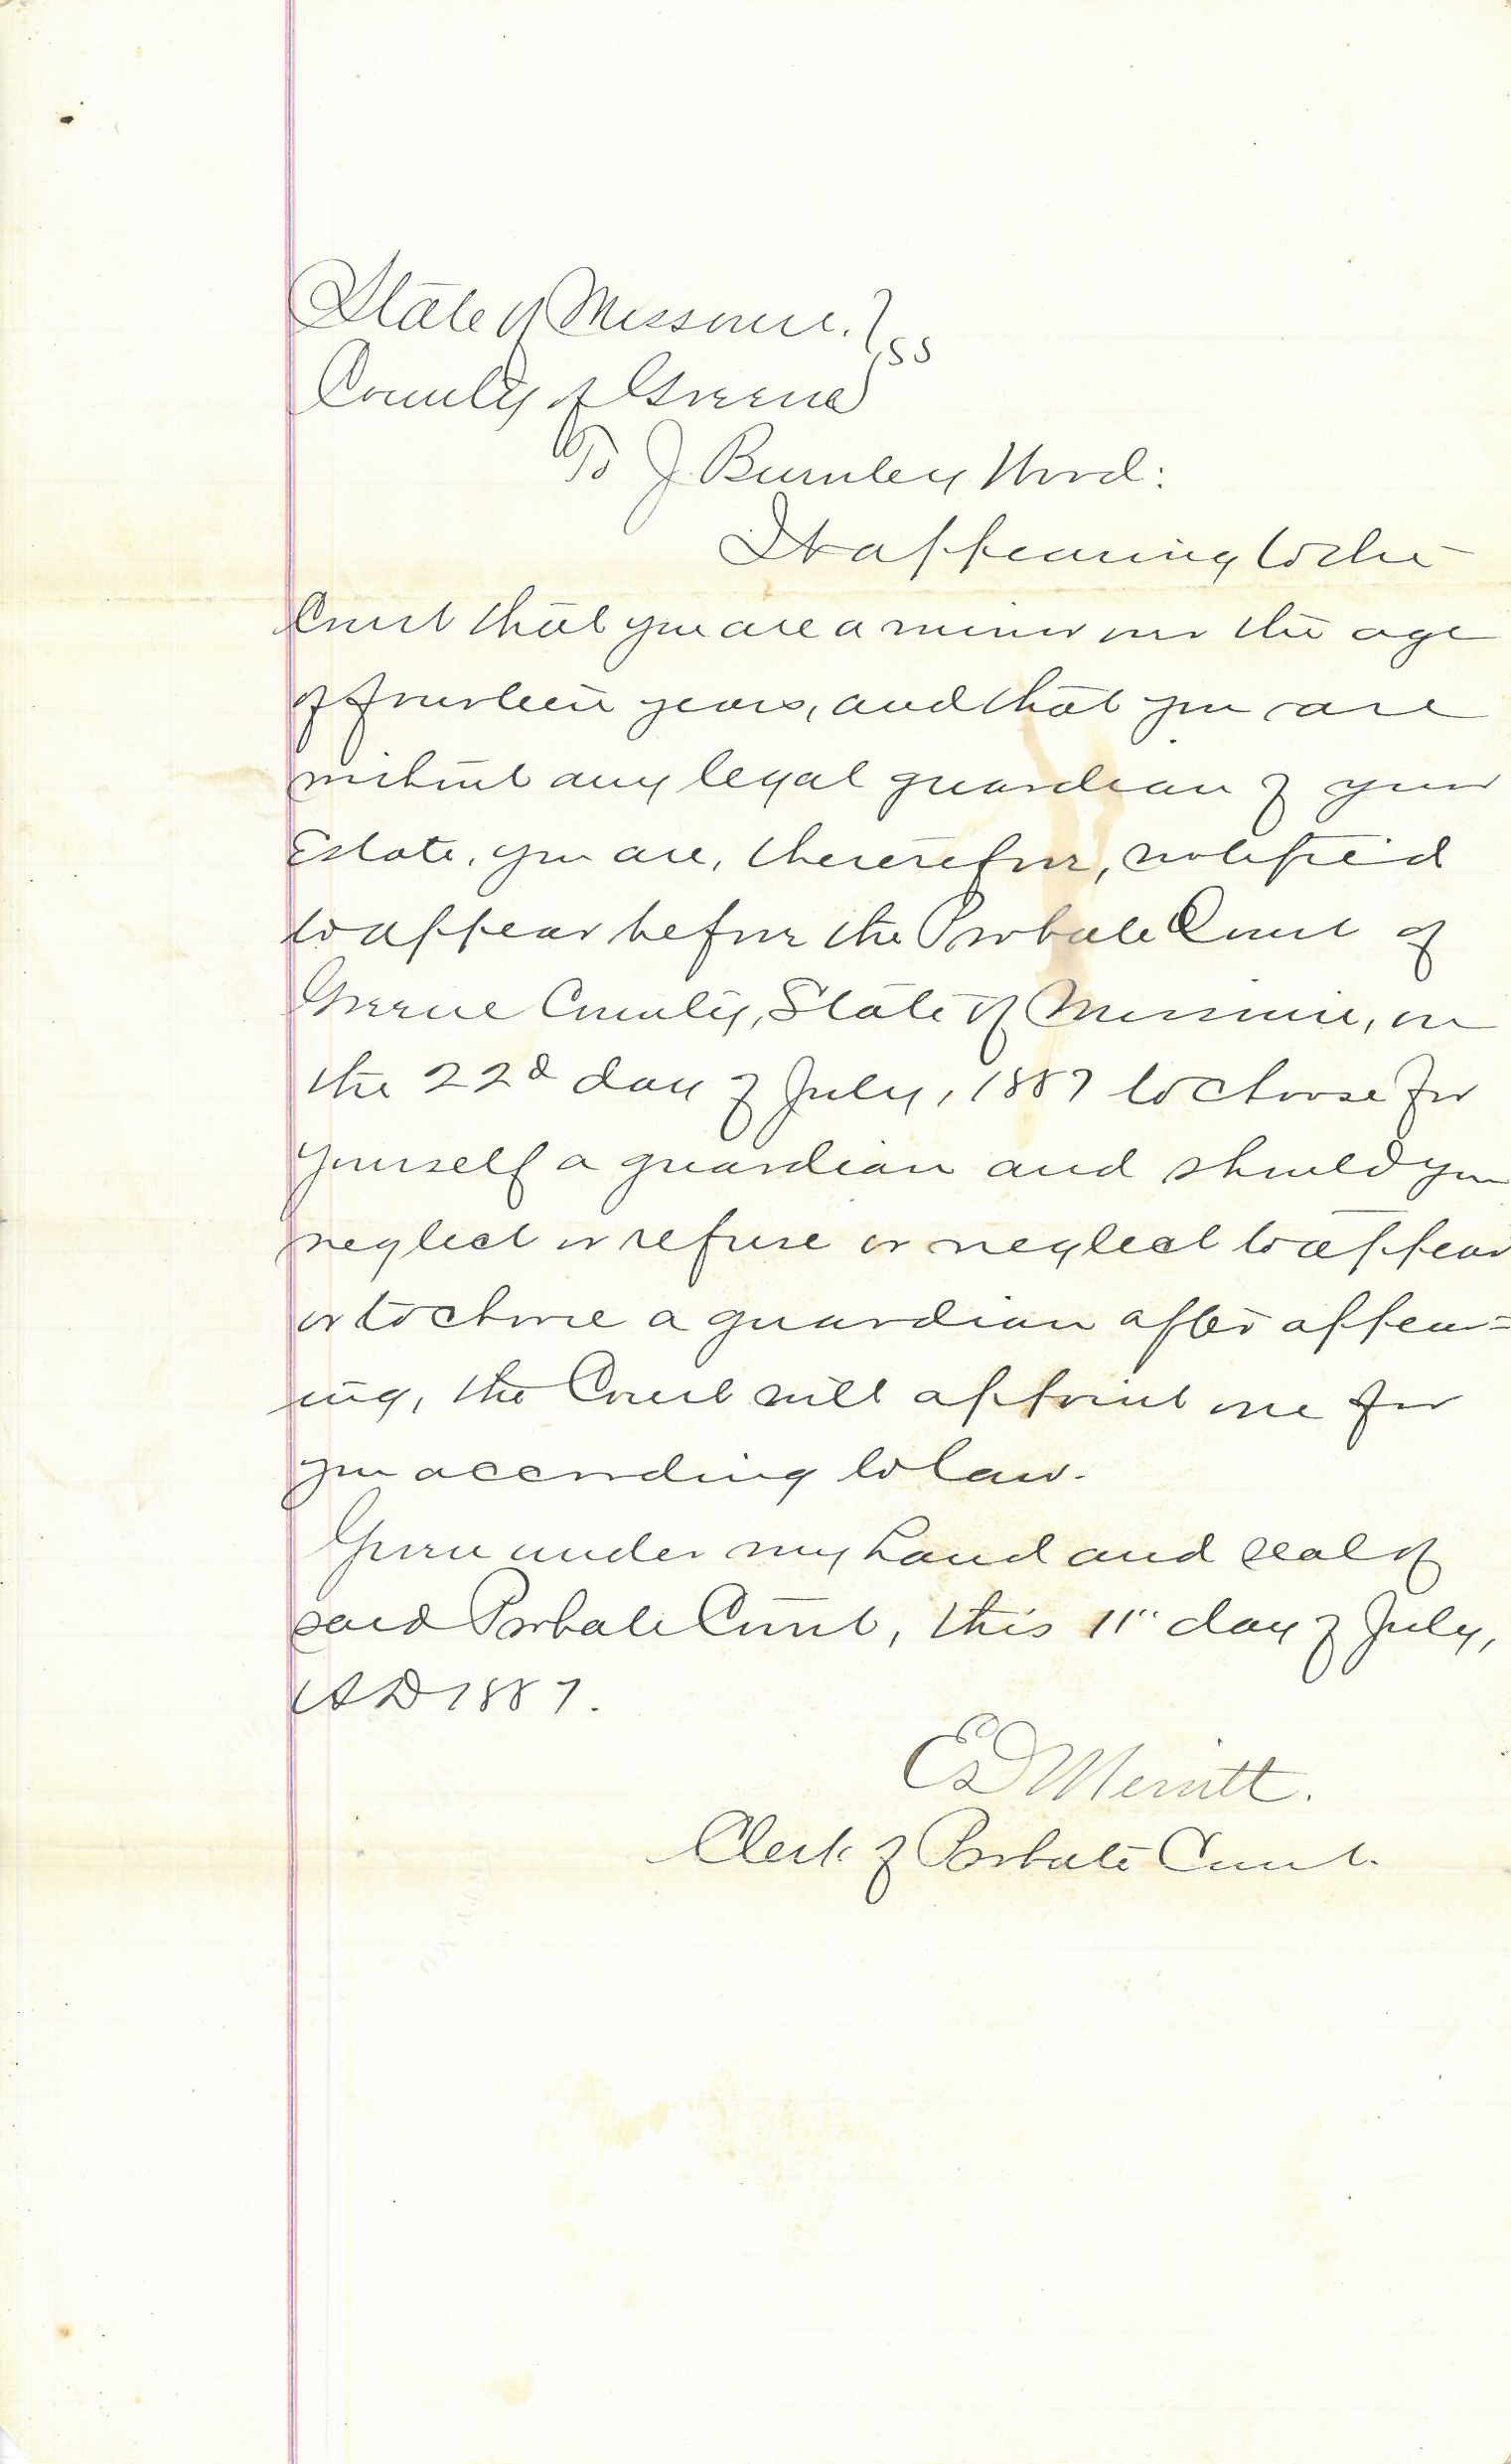 State of Missouri. } ss
County of Greene
To J. Burnley Word:
It appearing to the
Court that you are a minor over the age
of fourteen years, and that you are
without any legal guardian of your
Estate, you are, thererefore, notified
to appear before the Probate Court of
Greene County, State of Missouri, on
the 22d day of July, 1887 to choose for
yourself a guardian and should you
neglect or refuse or neglect to appear
or to choose a guardian after appear=
ing, the Court will appoint one for
you according to law.
Given under my hand and seal of
said Probate Court, this 11" day of July,
A D 1887.
E D Merritt.
Clerk of Probate Court.